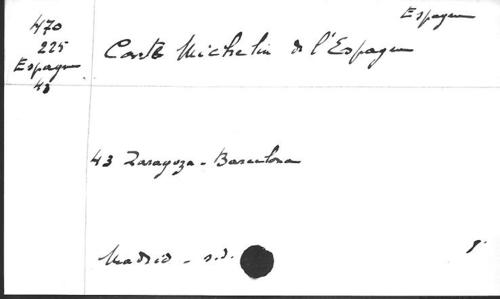 Espagne
470
225
Espagne
43
Carte Michelin de l'Espagne
43 Zaragoza - Barcelona
Madrid - s.d.